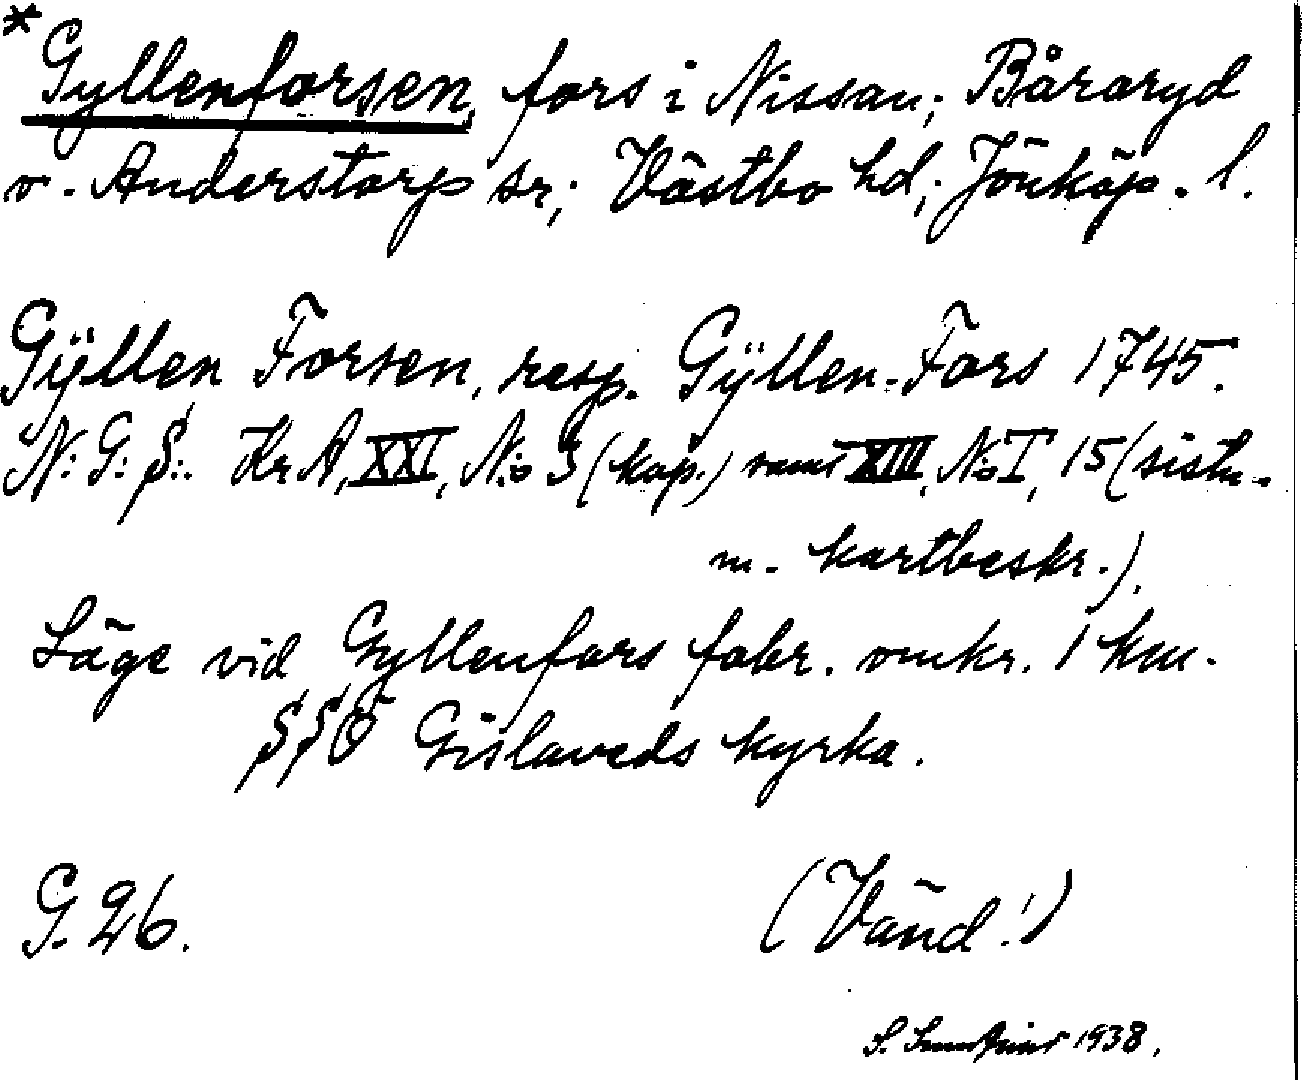 *Gyllenforsen, fors i Nissan; Båraryd
o. Anderstorp sr; Västbo hd; Jönköp. l.
Gÿllen Forsen, resp. Gÿllen-Fors 1745.
N: G: S:. Kr A, XXI, N:o 3 (kop.) samt XIII, N:o I, 15 (sistn.
m. kartbeskr.).
Läge vid Gyllenfors fabr. omkr. 1 km.
SSÖ Gislaveds kyrka.
G. 26.
(Vänd!)
S. 1938.